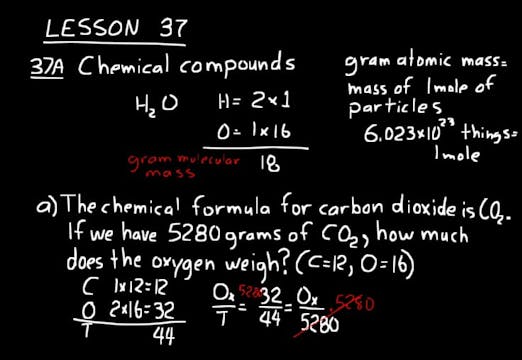 LESSON 37
37A Chemical compounds
H₂O H = 2×1
O = 1×16
gram molecular mass 18
gram atomic mass =
mass of 1 mole of
particles
6.023×10²³ things =
1 mole
a) The chemical formula for carbon dioxide is CO₂.
If we have 5280 grams of CO₂, how much
does the oxygen weigh? (C=12, O=16)
C 1×12=12
O 2×16=32
T 44
Ox/T = 5280 · 32/44 = Ox/5280 · 5280